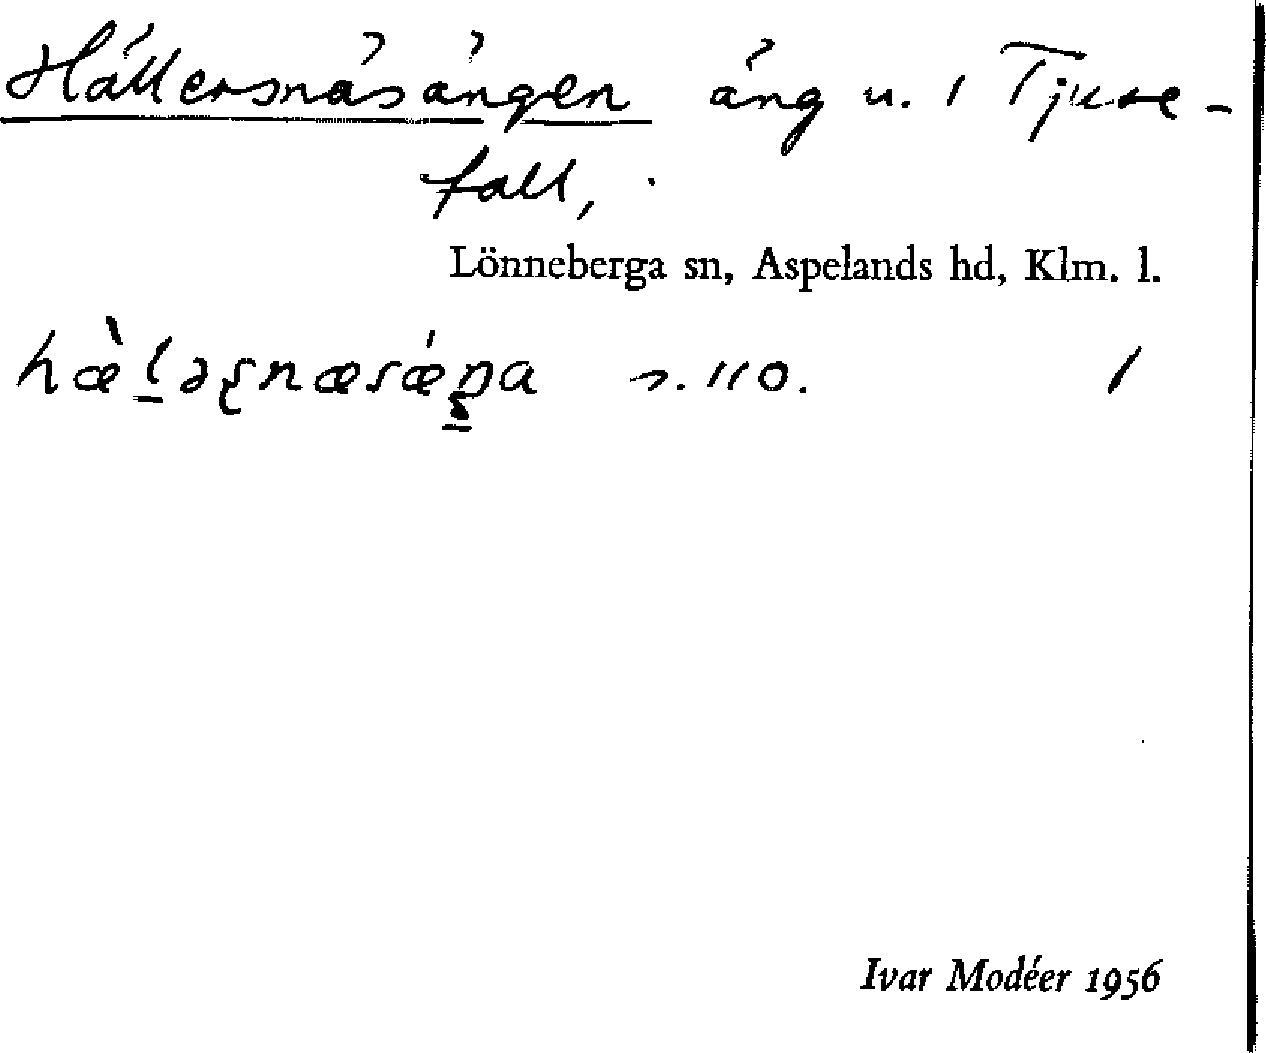 Hällersnäsängen äng u. i Tjuse-
fall,
Lönneberga sn, Aspelands hd, Klm. l.
hæ̀ḻəʂnæsǽŋa s. 110. 1
Ivar Modéer 1956